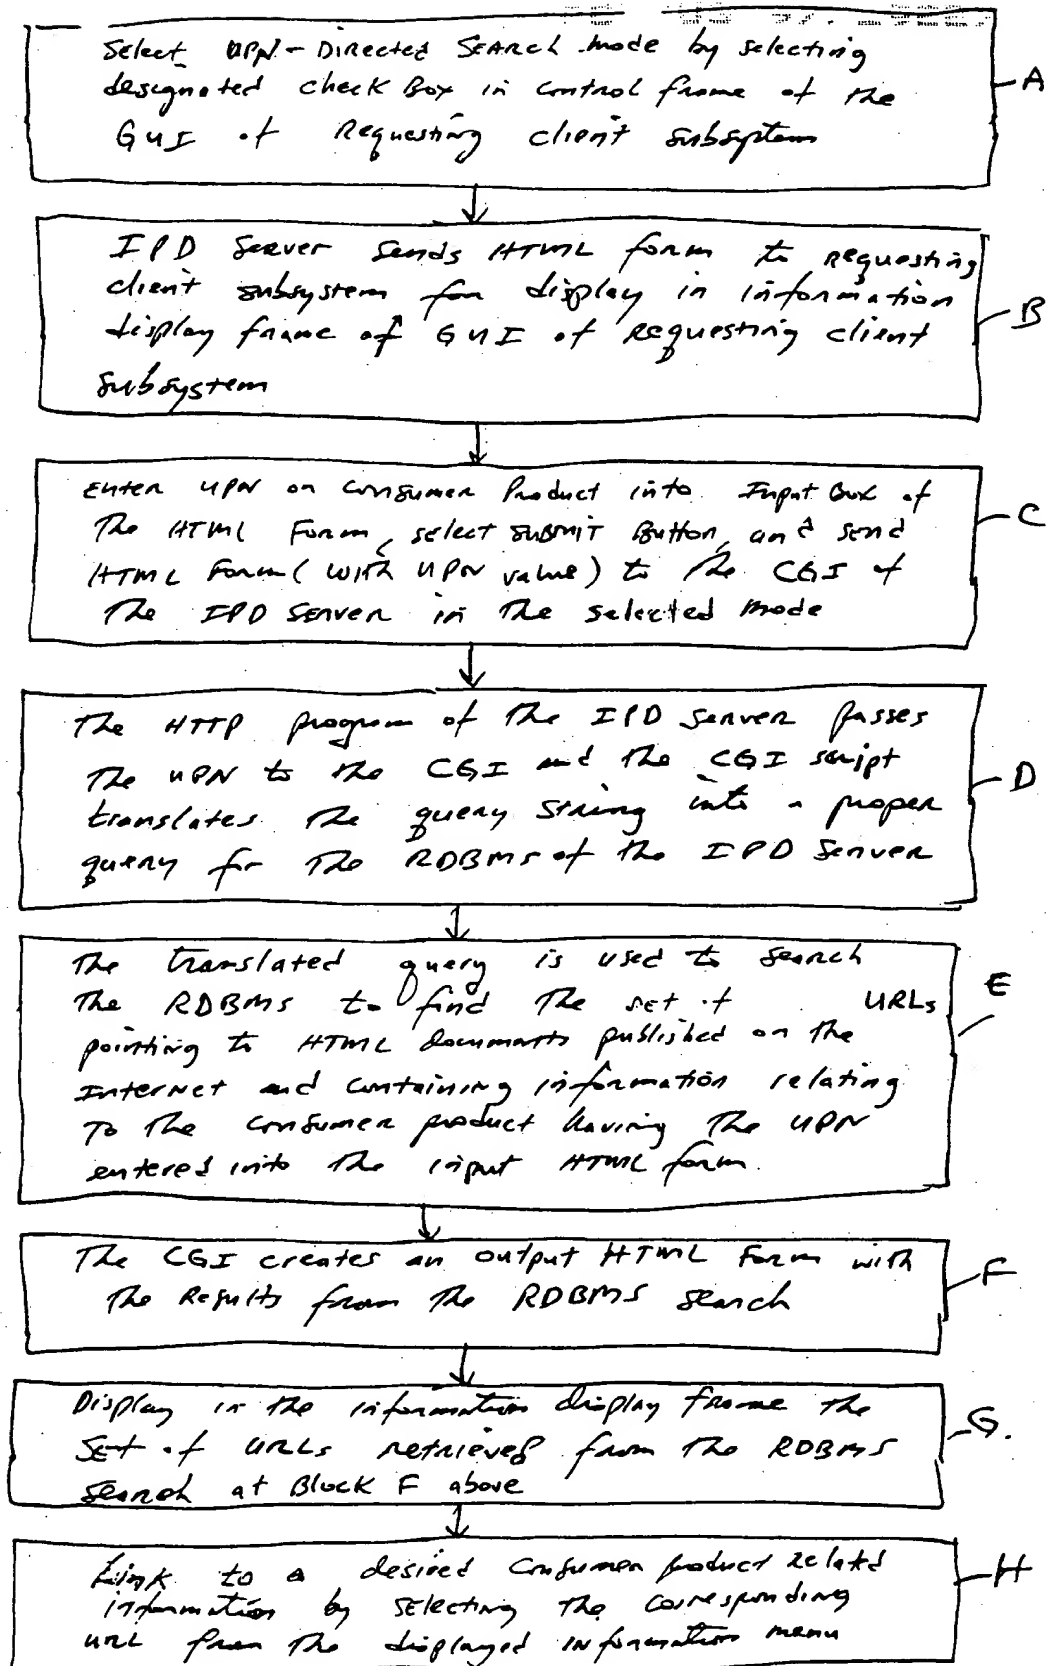 Select UPN-Directed Search mode by selecting
designated check Box in control frame of the
GUI of Requesting client subsystem
A
IPD Server sends HTML form to requesting
client subsystem for display in information
display frame of GUI of requesting client
subsystem
B
Enter UPN on Consumer Product into Input Box of
The HTML Form, select SUBMIT Button, and send
HTML Form (with UPN value) to the CGI of
The IPD Server in the selected mode
C
The HTTP program of the IPD Server passes
the UPN to the CGI and the CGI script
translates the query string into a proper
query for the RDBMS of the IPD Server
D
The translated query is used to search
the RDBMS to find the set of URLs
pointing to HTML documents published on the
Internet and containing information relating
To the consumer product having the UPN
entered into the input HTML form.
E
The CGI creates an output HTML Form with
the Results from the RDBMS search
F
Display in the information display frame the
set of URLs retrieved from the RDBMS
search at Block F above
G.
Link to a desired Consumer product related
information by selecting the corresponding
URL from the displayed information menu
H